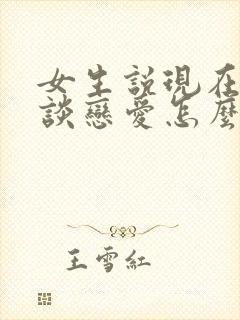 女生說現在
談戀愛怎麼
王雪紅